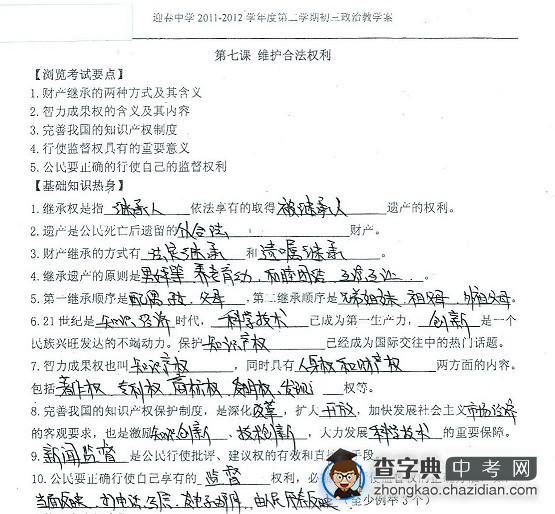 迎春中学 2011-2012 学年度第二学期初三政治教学案
第七课 维护合法权利
【浏览考试要点】
1.财产继承的两种方式及其含义
2.智力成果权的含义及其内容
3.完善我国的知识产权制度
4.行使监督权具有的重要意义
5.公民要正确的行使自己的监督权利
【基础知识热身】
1.继承权是指 继承人 依法享有的取得 被继承人 遗产的权利。
2.遗产是公民死亡后遗留的 财产。
3.财产继承的方式有 法定继承 和 遗嘱继承 。
4.继承遗产的原则是 男女平等
5.第一继承顺序是 配偶 父母 ,第二继承顺序是 兄弟姐妹 祖父母 外祖父母。
6.21世纪是 知识 经济 时代, 科学技术 已成为第一生产力, 创新 是一个
民族兴旺发达的不竭动力。保护 知识产权 已经成为国际交往中的热门话题。
7.智力成果权也叫 知识产权 ,同时具有 人身权和财产权 两方面的内容。
包括 著作权、专利权、商标权、发明权、发现 权等。
8.完善我国的知识产权保护制度,是深化 改革 ,扩大 开放 ,加快发展社会主义 市场经济
的客观要求,也是激励 知识创新 、技术创新 ,大力发展 科学技术 的重要保障。
9. 新闻监督 是公民行使批评、建议权的有效和直接 手段
10.公民要正确行使自己享有的 监督 权利,必
当面反映 (至少例举3个)
查字典中考网
zhongkao.chazidian.com